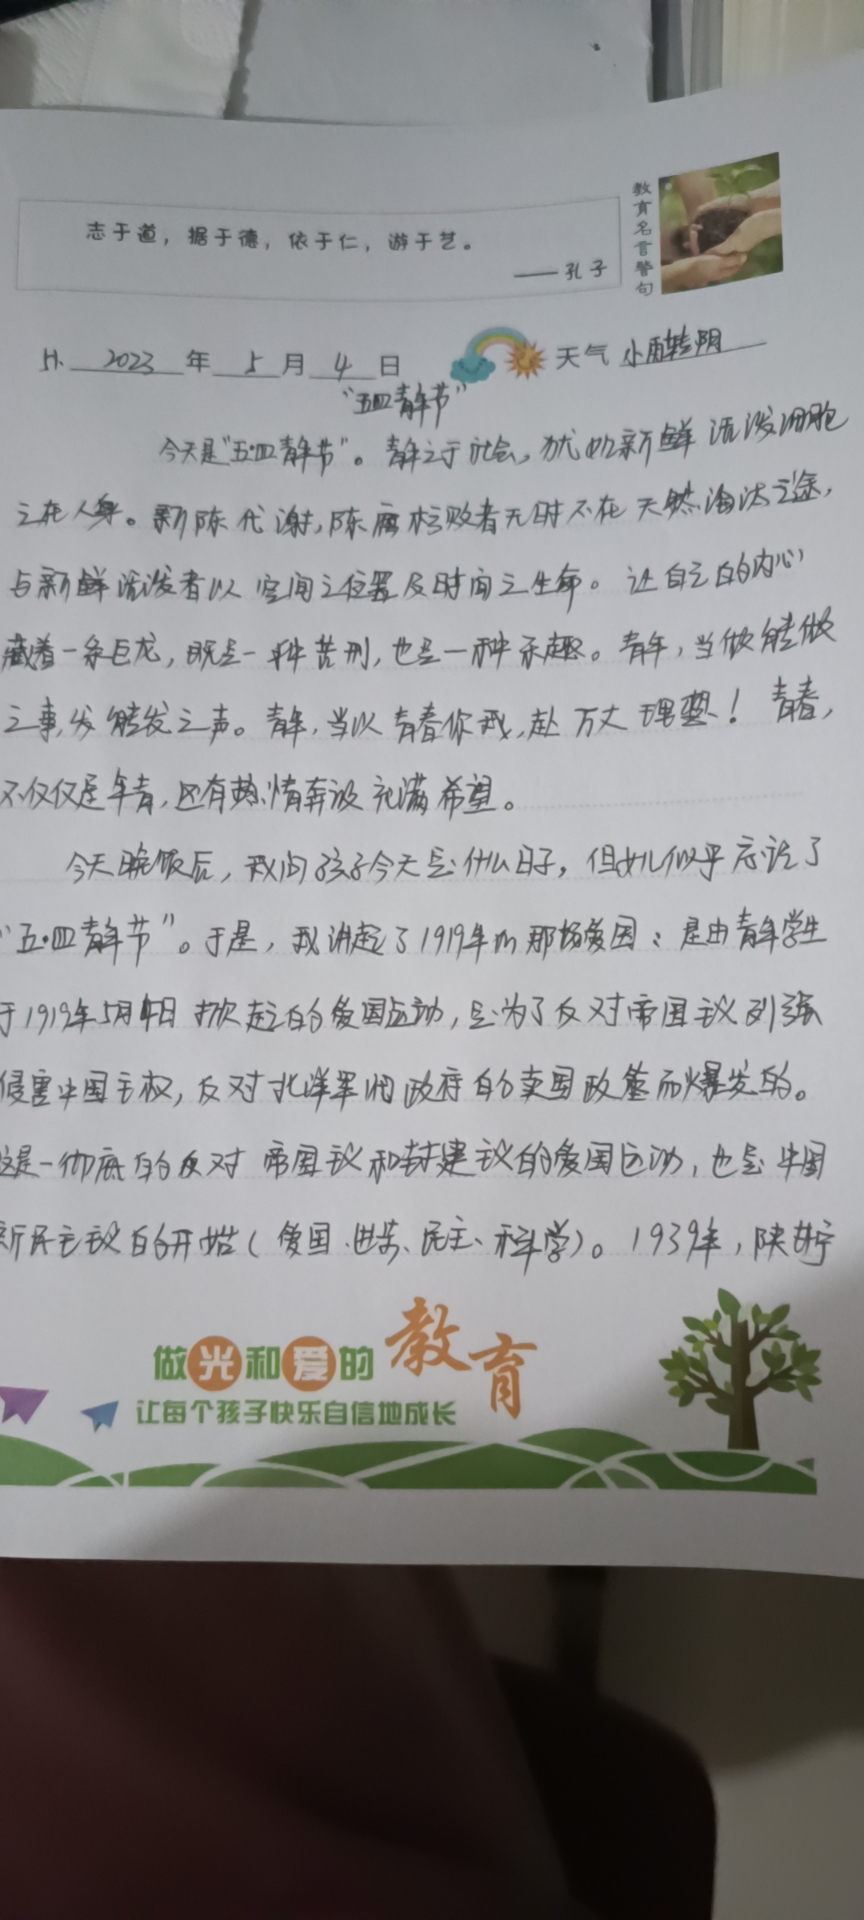 志于道，据于德，依于仁，游于艺。
——孔子
教育名言警句
51. 2023 年 5 月 4 日 天气 小雨转阴
“五四青年节”
今天是“五·四青年节”。青年之于社会，犹如新鲜活泼细胞
之在人身。新陈代谢，陈腐朽败者无时不在天然淘汰之途，
与新鲜活泼者以空间之位置及时间之生命。让自己的内心
藏着一条巨龙，既是一种苦刑，也是一种乐趣。青年，当做能做
之事，发能发之声。青年，当以青春你我，赴万丈理想！青春，
不仅仅是年青，还有热情奔放充满希望。
今天晚饭后，我问孩子今天是什么日子，但她似乎忘记了
“五·四青年节”。于是，我讲起了1919年的那场爱国：是由青年学生
于1919年5月4日掀起的爱国运动，是为了反对帝国主议列强
侵害中国主权，反对北洋军阀政府的卖国政策而爆发的。
这是一彻底的反对帝国议和封建议的爱国运动，也是中国
新民主议的开始（爱国、进步、民主、科学）。1939年，陕甘宁
做光和爱的教育
让每个孩子快乐自信地成长